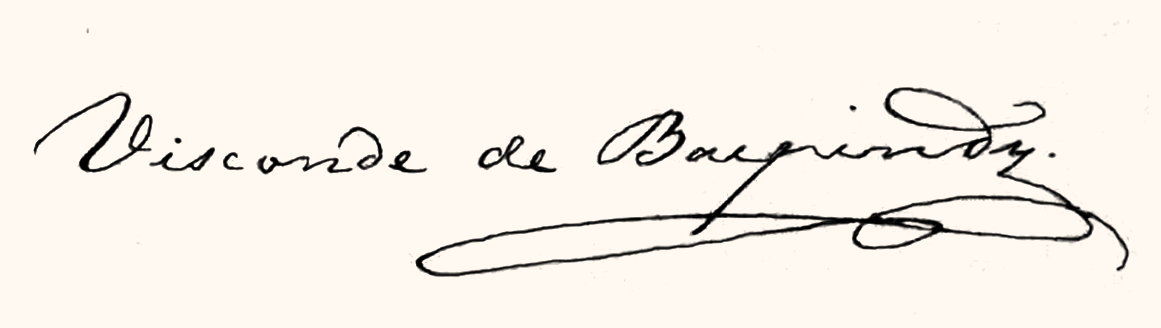 Visconde de Baepindy.